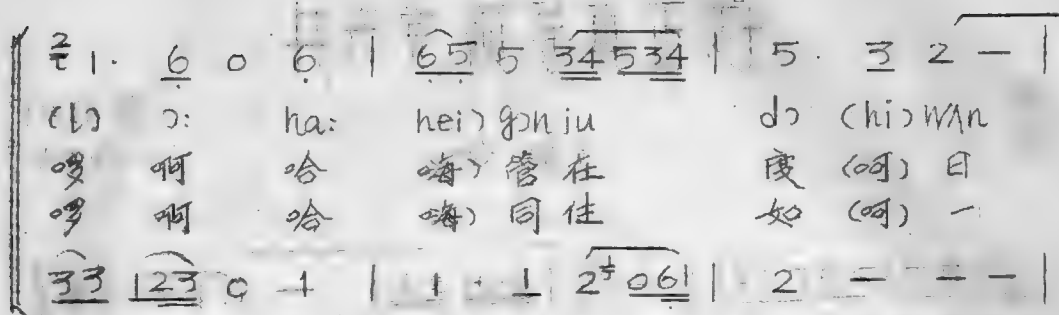 2/t 1. 6 0 6 | 65 5 34 534 | 5. 3 2 — |
(lɔ ɔ: ha: hei) gɔn iu dɔ (hi) wʌn
啰 啊 哈 嗨) 管 在 度 (呵) 日
啰 啊 哈 嗨) 同 住 如 (呵) 一
33 123 0 1 | 1 · 1 2 061 | 2 — — — |